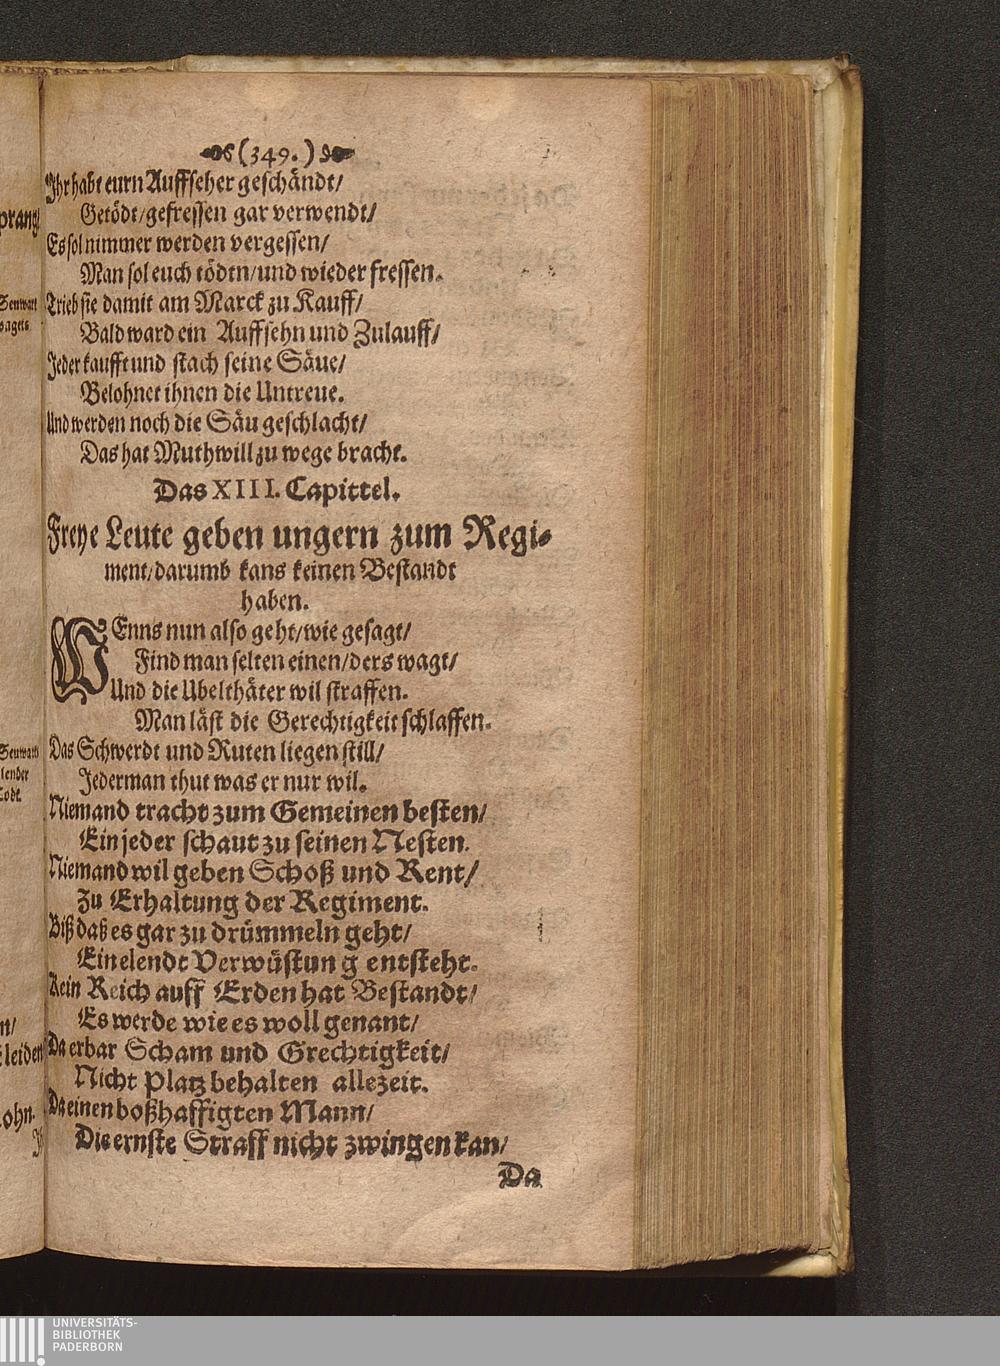 (349.)
Ihr habt eurn Auffseher geschändt/
Getödt/gefressen gar verwendt/
Es sol nimmer werden vergessen/
Man sol euch tödtn/und wieder fressen.
Trieb sie damit am Marck zu Kauff/
Bald ward ein Auffsehn und Zulauff/
Jeder kaufft und stach seine Säue/
Belohnet ihnen die Untreue.
Und werden noch die Säu geschlacht/
Das hat Muthwill zu wege bracht.
Das XIII. Capittel.
Freye Leute geben ungern zum Regi-
ment/darumb kans keinen Bestandt
haben.
WEnns nun also geht/wie gesagt/
Find man selten einen/ders wagt/
Und die Ubelthäter wil straffen.
Man läst die Gerechtigkeit schlaffen.
Das Schwerdt und Ruten liegen still/
Jederman thut was er nur wil.
Niemand tracht zum Gemeinen besten/
Ein jeder schaut zu seinen Nesten.
Niemand wil geben Schoß und Rent/
Zu Erhaltung der Regiment.
Biß daß es gar zu drümmeln geht/
Ein elendt Verwüstung entsteht.
Kein Reich auff Erden hat Bestandt/
Es werde wie es woll genant/
Da erbar Scham und Grechtigkeit/
Nicht Platz behalten allezeit.
Da einen boßhaffigten Mann/
Die ernste Straff nicht zwingen kan/
Da
UNIVERSITÄTS-
BIBLIOTHEK
PADERBORN